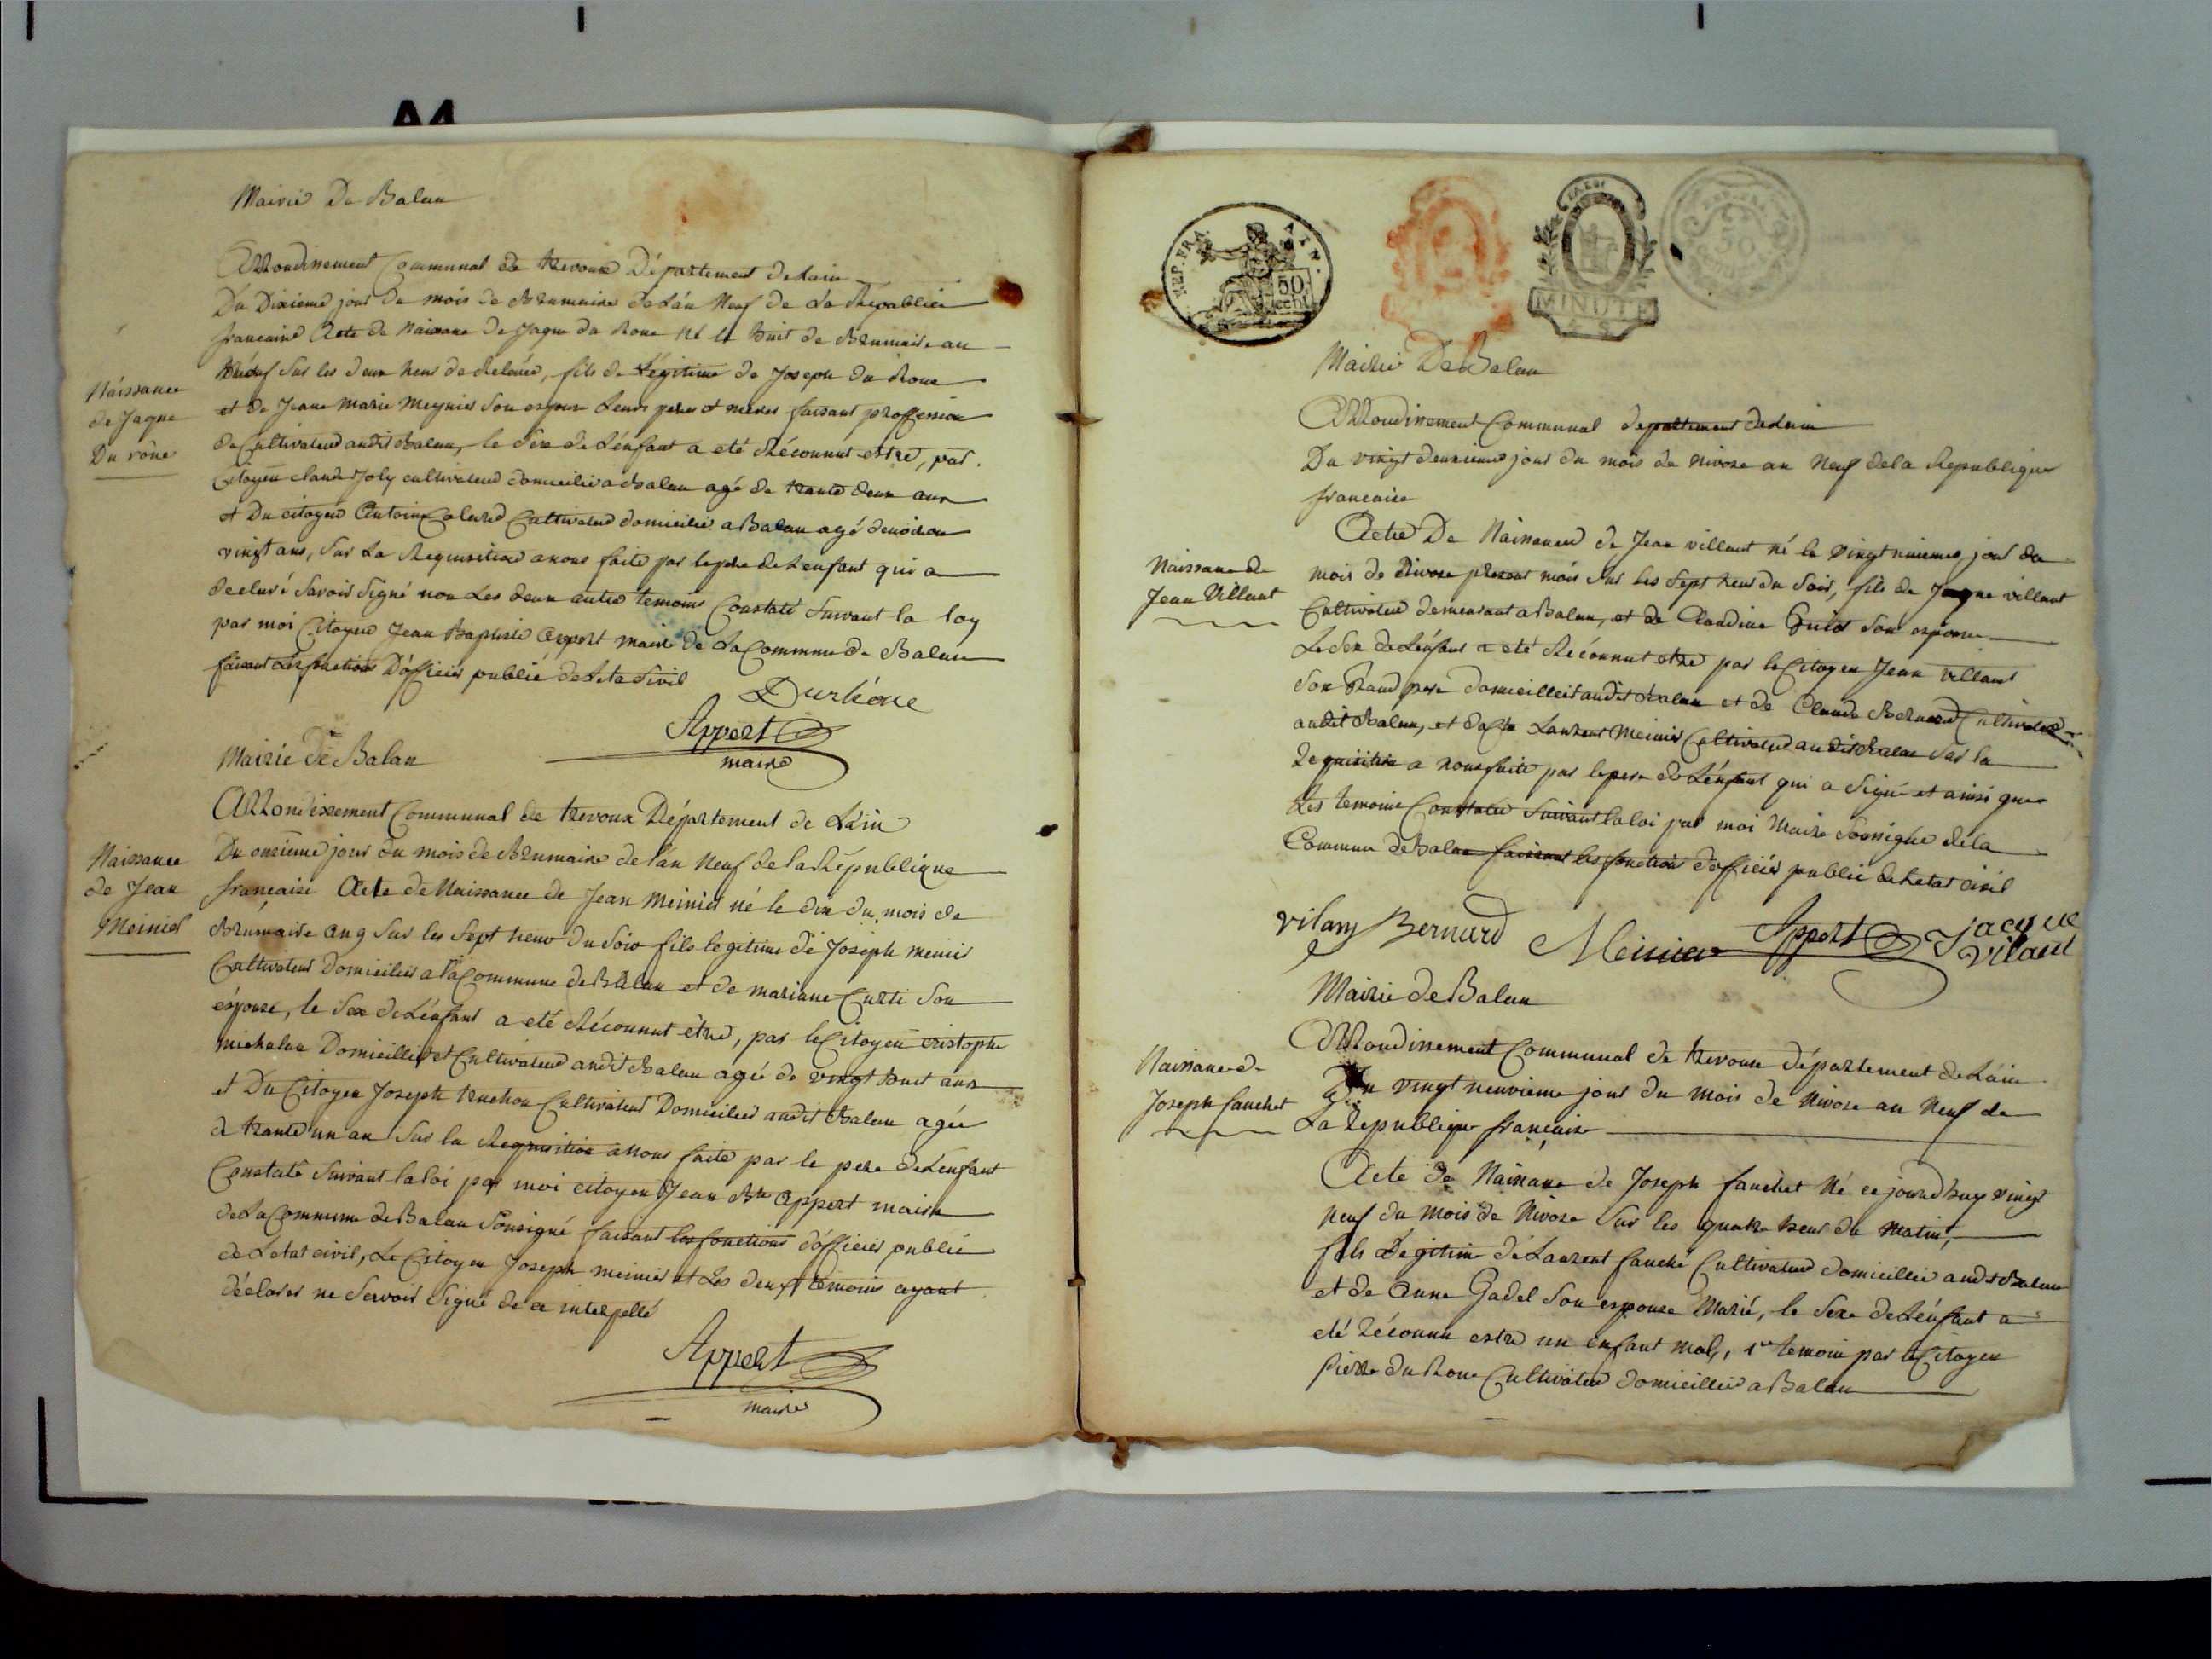 Mairie De Balan
Arrondissement Communal de trevoux Département de Lain
Du Dixieme jour du mois de Brumaire de L'an Neuf de La République
francaise Acte de Naissance de Jaque du Rone Né le huit de Brumaire an
Neuf Sur les deux heus de Relevée, fils de Légitime de Joseph du Rone
et de Jeane Marie Meynier Son espouse Leurs peres et meres faisant proffession
de Cultivateur audit Balan, le Sexe de L'énfant a eté Réconnut estre, par
Citoyen claude Joly cultivateur domicilié a Balan agé de trante deux ans
et Du citoyen Antoine Cultivateur domicilié a Balan agé denviron
vingt ans, Sur La Requisition a nous faite par le pere de Lenfant qui a
declaré Savoir Signé non Les deux autre temoins Constaté Suivant la loy
par moi Citoyen Jean Baptiste Appert maire de La Commune de Balan
faisant Les fonctions D'officier public de Leta Sivil
Naissance
de Jaque
Du rône
Durhône
Appert
maire
Mairie de Balan
Arrondissement Communal de trevoux Département de L'ain
Du onzieme jour du mois de Brumaire de l'an Neuf de la République
française Acte de Naissance de Jean Meinier né le dix du mois de
Brumaire an 9 Sur les Sept heur du Soir fils legitime de Joseph meinier
Cultivateur Domicilié a la Commune de Balan et de mariane Curti Son
éspouse, le Sexe de L'énfant a eté Réconnut être, par le Citoyen cristophe
michalan Domicillié et Cultivateur audit Balan agée de vingt huit ans
et Du Citoyen Joseph truchon Cultivateur Domicilié audit Balan agée
de trante un an Sur la Requisition a nous faite par le pere de L'enfant
Constaté Suivant la loi par moi citoyen Jean Bte Appert maire
de La Commune de Balan Sousigné faisant les fonctions d'officier public
de L'etat civil, Le Citoyen Joseph meinier et Les deux temoins ayant
déclarer ne Servoir Signé de ce interpellé
Naissance
de Jean
Meinier
Appert
maire
REP. FRA. AIN.
50
cent
MINUTE
50
Mairie De Balan
Arrondissement Communal departement de Lain
Du vingt deuxieme jour du mois de Nivose an Neuf de la Republique
francaise
Acte De Naissance de Jean villant né le vingt unieme jour du
mois de Nivose present mois Sur les Sept heur du Soir, fils de Jaque villant
Cultivateur demeurant a Balan, et de Claudine Son espouse
Le Sex de L'énfant a eté Réconnut etre par le Citoyen Jean villant
Son Grand pere domicillié audit Balan et de Claude Bernard Cultivateur
audit Balan, et de Laurent Meinier Cultivateur audit Balan Sur la
Requisition a nous faite par le pere de L'énfant qui a Signé et ainsi que
Les temoins Constaté Suivant la loi par moi Maire Sousigné de la
Commune de Balan faisant les fonctions d'officier public de L'etat civil
Naissance de
Jean Villant
vilany Bernard Meinier Appert Jacque
vilant
Mairie de Balan
Arrondissement Communal de trevoux département de L'ain
Du vingt neuvieme jour du mois de Nivose an Neuf de
La Republique française
Acte de Naissance de Joseph fauchet Né ce jourd'huy vingt
neuf du mois de Nivose Sur les quatre heur du matin,
fils Légitime de Laurent fauché Cultivateur domicillié audit Balan
et de Anne Gadel Son espouse Marié, le Sexe de L'énfant a
eté réconnu estre un énfant mal, 1er temoin par le Citoyen
Pierre du Rone Cultivateur domicillié a Balan
Naissance de
Joseph fauchet